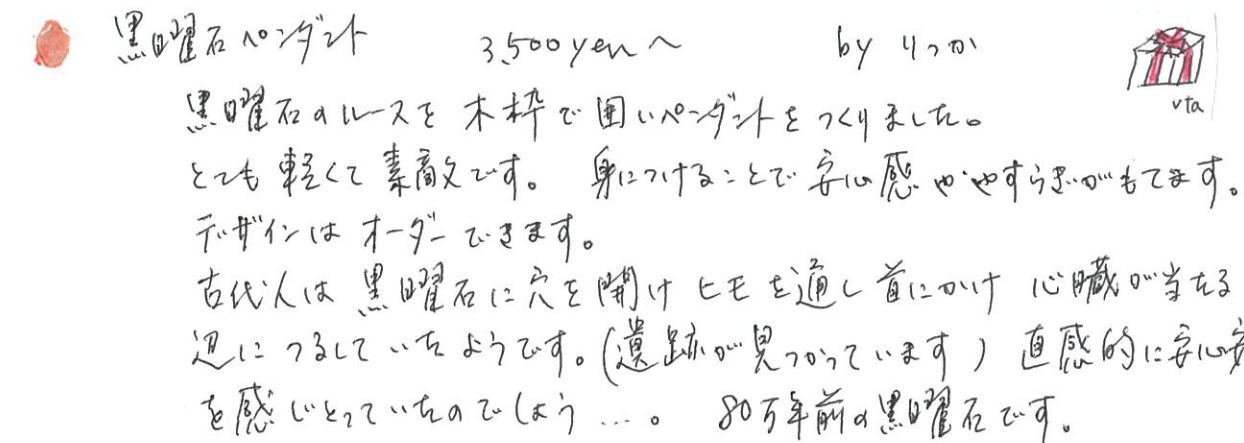 黒曜石ペンダント 3,500yen〜 by りつか
vta
黒曜石のルースを木枠で囲いペンダントをつくりました。
とても軽くて素敵です。 身につけることで安心感ややすらぎがもてます。
デザインはオーダーできます。
古代人は黒曜石に穴を開けヒモを通し首にかけ 心臓が当たる
辺につるしていたようです。(遺跡が見つかっています) 直感的に安心安
を感じとっていたのでしょう…。 80万年前の黒曜石です。